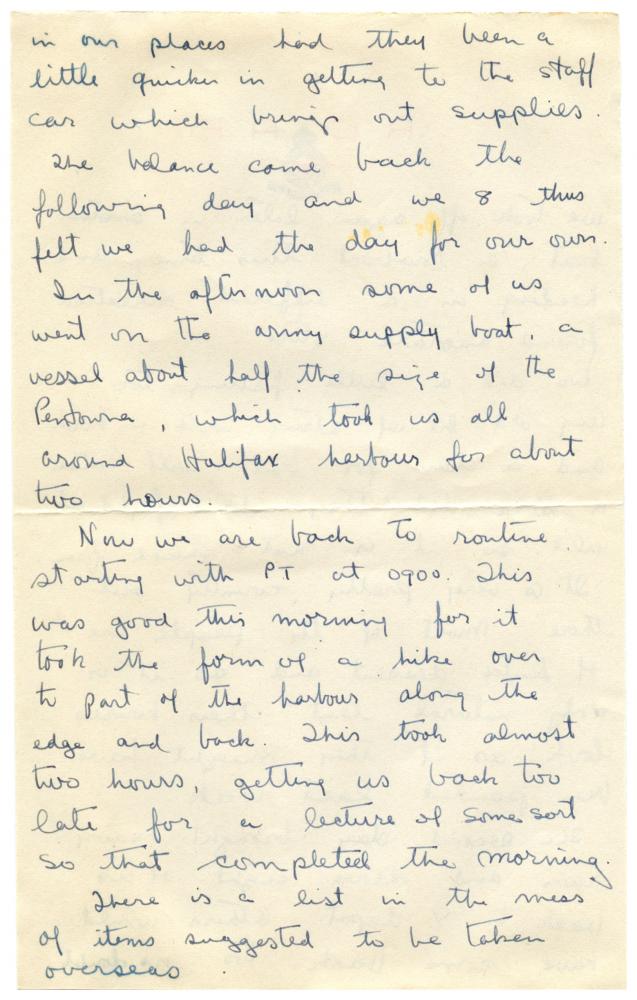 in our places had they been a
little quicker in getting to the staff
car which brings out supplies.
The balance came back the
following day and we 8 thus
felt we had the day for our own.
In the afternoon some of us
went on the army supply boat, a
vessel about half the size of the
which took us all
around Halifax harbour for about
two hours.
Now we are back to routine
starting with PT at 0900. This
was good this morning for it
took the form of a hike over
to part of the harbour along the
edge and back. This took almost
two hours, getting us back too
late for a lecture of some sort
so that completed the morning.
There is a list in the mess
of items suggested to be taken
overseas.